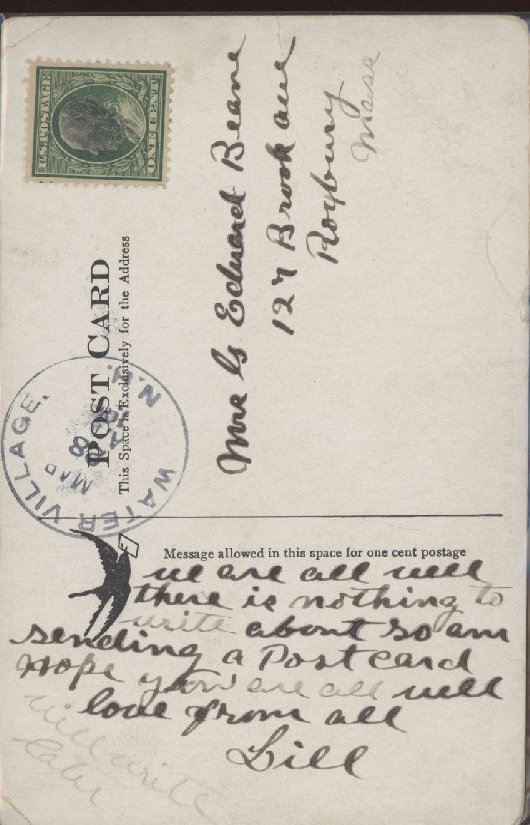 U.S. POSTAGE
ONE CENT
POST CARD
This Space is Exclusively for the Address
WATER VILLAGE. N.H.
MAR
8
Mrs G Edward Beane
127 Brook ave
Roxbury
Mass
Message allowed in this space for one cent postage
we are all well
there is nothing to
write about so am
sending a Post card
Hope you are all well
love from all
Lill
will write
later